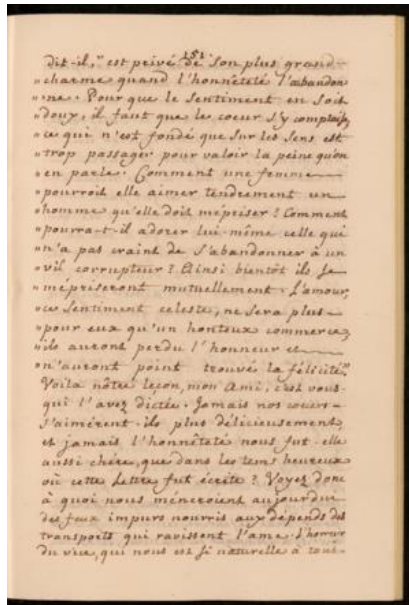 151
dit-il, "est privé de son plus grand
"charme quand l'honnêteté l'abandon-
"ne. Pour que le sentiment en soit
"doux, il faut que le coeur s'y complaise,
"ce qui n'est fondé que sur les sens est
"trop passager pour valoir la peine qu'on
"en parle. Comment une femme
"pourroit elle aimer tendrement un
"homme qu'elle doit mépriser? Comment
"pourra-t-il adorer lui-même celle qui
"n'a pas craint de s'abandonner à un
"vil corrupteur? Ainsi bientôt ils se
"mépriseront mutuellement. L'amour,
"ce sentiment celeste, ne sera plus
"pour eux qu'un honteux commerce,
"ils auront perdu l'honneur et
"n'auront point trouvé la félicité."
Voila nôtre leçon, mon Ami, c'est vous
qui l'avez dictée. Jamais nos coeurs
s'aimèrent-ils plus délicieusement,
et jamais l'honnêteté nous fut-elle
aussi chére, que dans les tems heureux
où cette Lettre fut écrite? Voyez donc
à quoi nous méneroient aujourdui
des feux impurs nourris aux dépends des
transports qui ravissent l'ame. L'horreur
du vice, qui nous est si naturelle à tous-